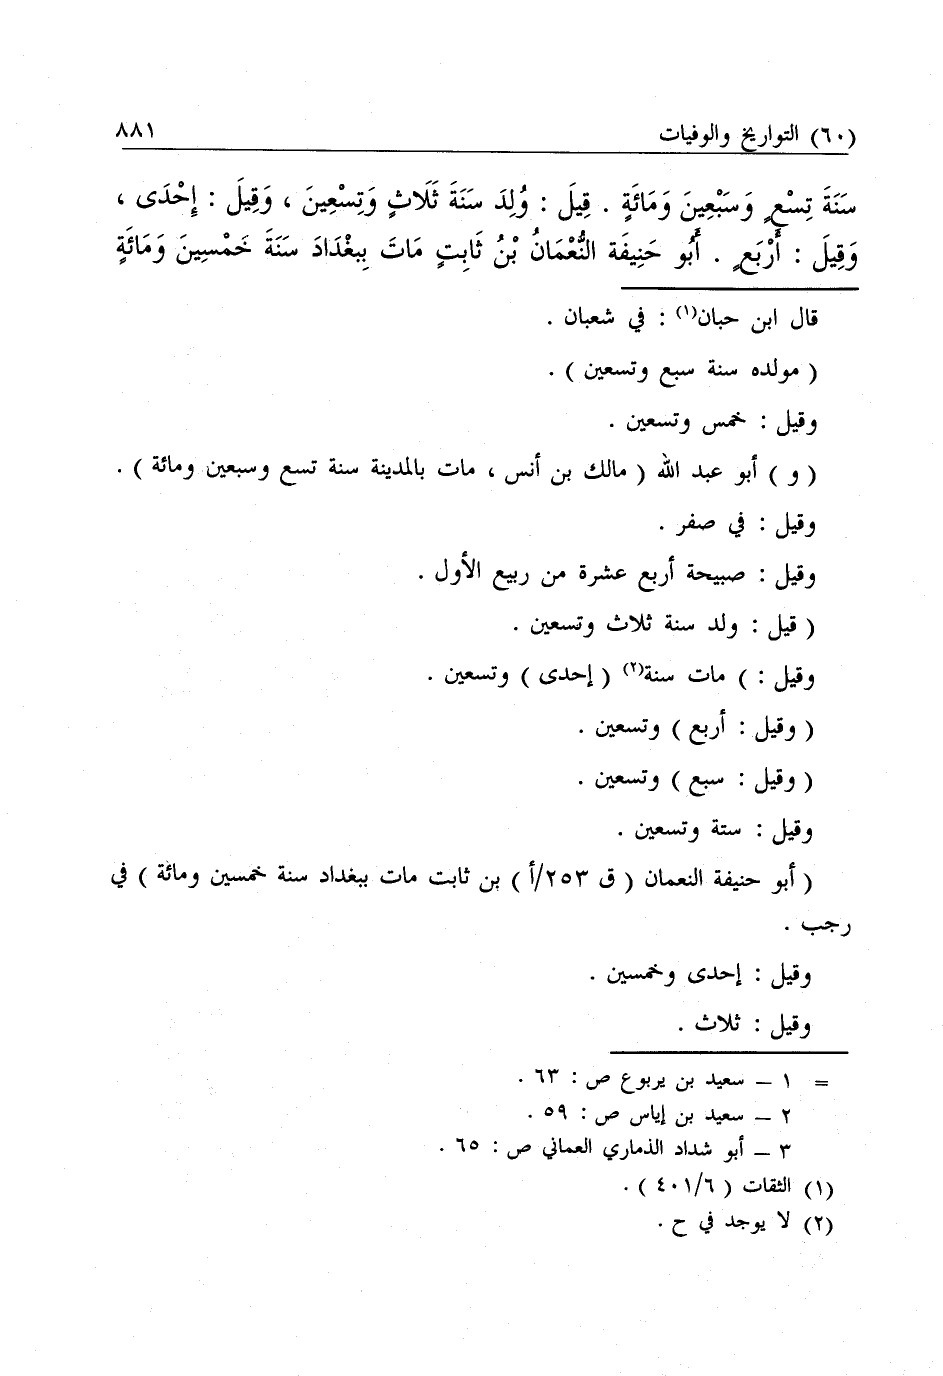 (٦٠) التواريخ والوفيات ٨٨١
سَنَةَ تِسْعٍ وَسَبْعِينَ وَمَائَةٍ . قِيلَ : وُلِدَ سَنَةَ ثَلَاثٍ وَتِسْعِينَ ، وَقِيلَ : إِحْدَى ،
وَقِيلَ : أَرْبَعٍ . أَبُو حَنِيفَة النُّعْمَانُ بْنُ ثَابِتٍ مَاتَ بِبغْدَادَ سَنَةَ خَمْسِينَ وَمَائَةٍ
قال ابن حبان(١) : في شعبان .
( مولده سنة سبع وتسعين ) .
وقيل : خمس وتسعين .
( و ) أبو عبد الله ( مالك بن أنس ، مات بالمدينة سنة تسع وسبعين ومائة ) .
وقيل : في صفر .
وقيل : صبيحة أربع عشرة من ربيع الأول .
( قيل : ولد سنة ثلاث وتسعين .
وقيل : ) مات سنة(٢) ( إحدى ) وتسعين .
( وقيل : أربع ) وتسعين .
( وقيل : سبع ) وتسعين .
وقيل : ستة وتسعين .
( أبو حنيفة النعمان ( ق ٢٥٣/أ ) بن ثابت مات ببغداد سنة خمسين ومائة ) في
رجب .
وقيل : إحدى وخمسين .
وقيل : ثلاث .
= ١ – سعيد بن يربوع ص : ٦٣ .
٢ – سعيد بن إياس ص : ٥٩ .
٣ – أبو شداد الذماري العماني ص : ٦٥ .
(١) الثقات ( ٤٠١/٦ ) .
(٢) لا يوجد في ح .